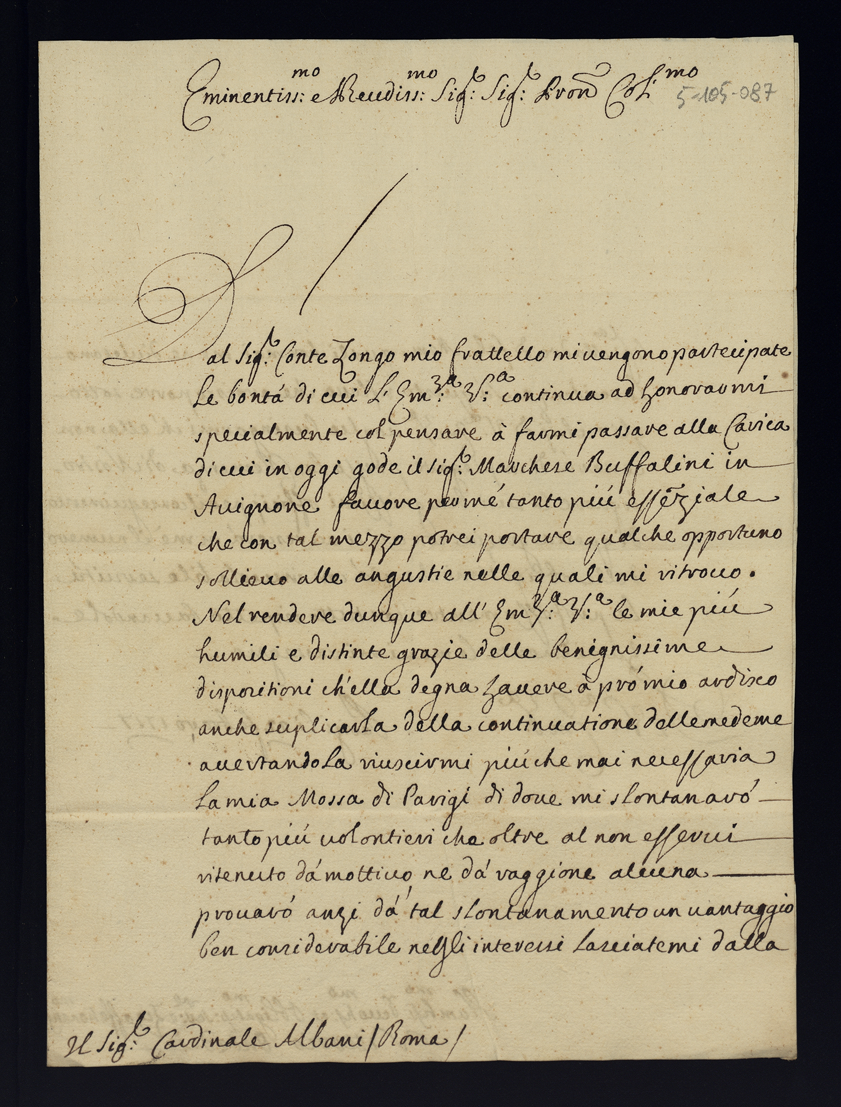 Eminentiss:mo e Reudiss:mo Sig:r Sig:r Pron Col:mo
5-105-087
Dal Sig:r Conte Zongo mio frattello mi uengono partecipate
le bontá di cui L'Em:za V:a continua ad honorarmi
specialmente col pensare à farmi passare alla Carica
di cui in oggi gode il Sig:r Marchese Buffalini in
Auignone fauore per mé tanto piú essēziale
che con tal mezzo potrei portare qualche opportuno
sollieuo alle angustie nelle quali mi ritrouo.
Nel rendere dunque all'Em:za V:a le mie piú
humili e distinte grazie delle benignissime
dispositioni ch'ella degna hauere à pró mio ardisco
anche suplicarla della continuatione delle medeme
auertandola riuscirmi piú che mai necessaria
la mia Mossa di Parigi di doue mi slontanaró
tanto piú uolontieri che oltre al non esserui
ritenuto dá mottiuo ne dá raggione alcuna
prouaró anzi dá tal slontanamento un uantaggio
ben considerabile negli interessi lasciatemi dalla
Il Sig:r Cardinale Albani /Roma/